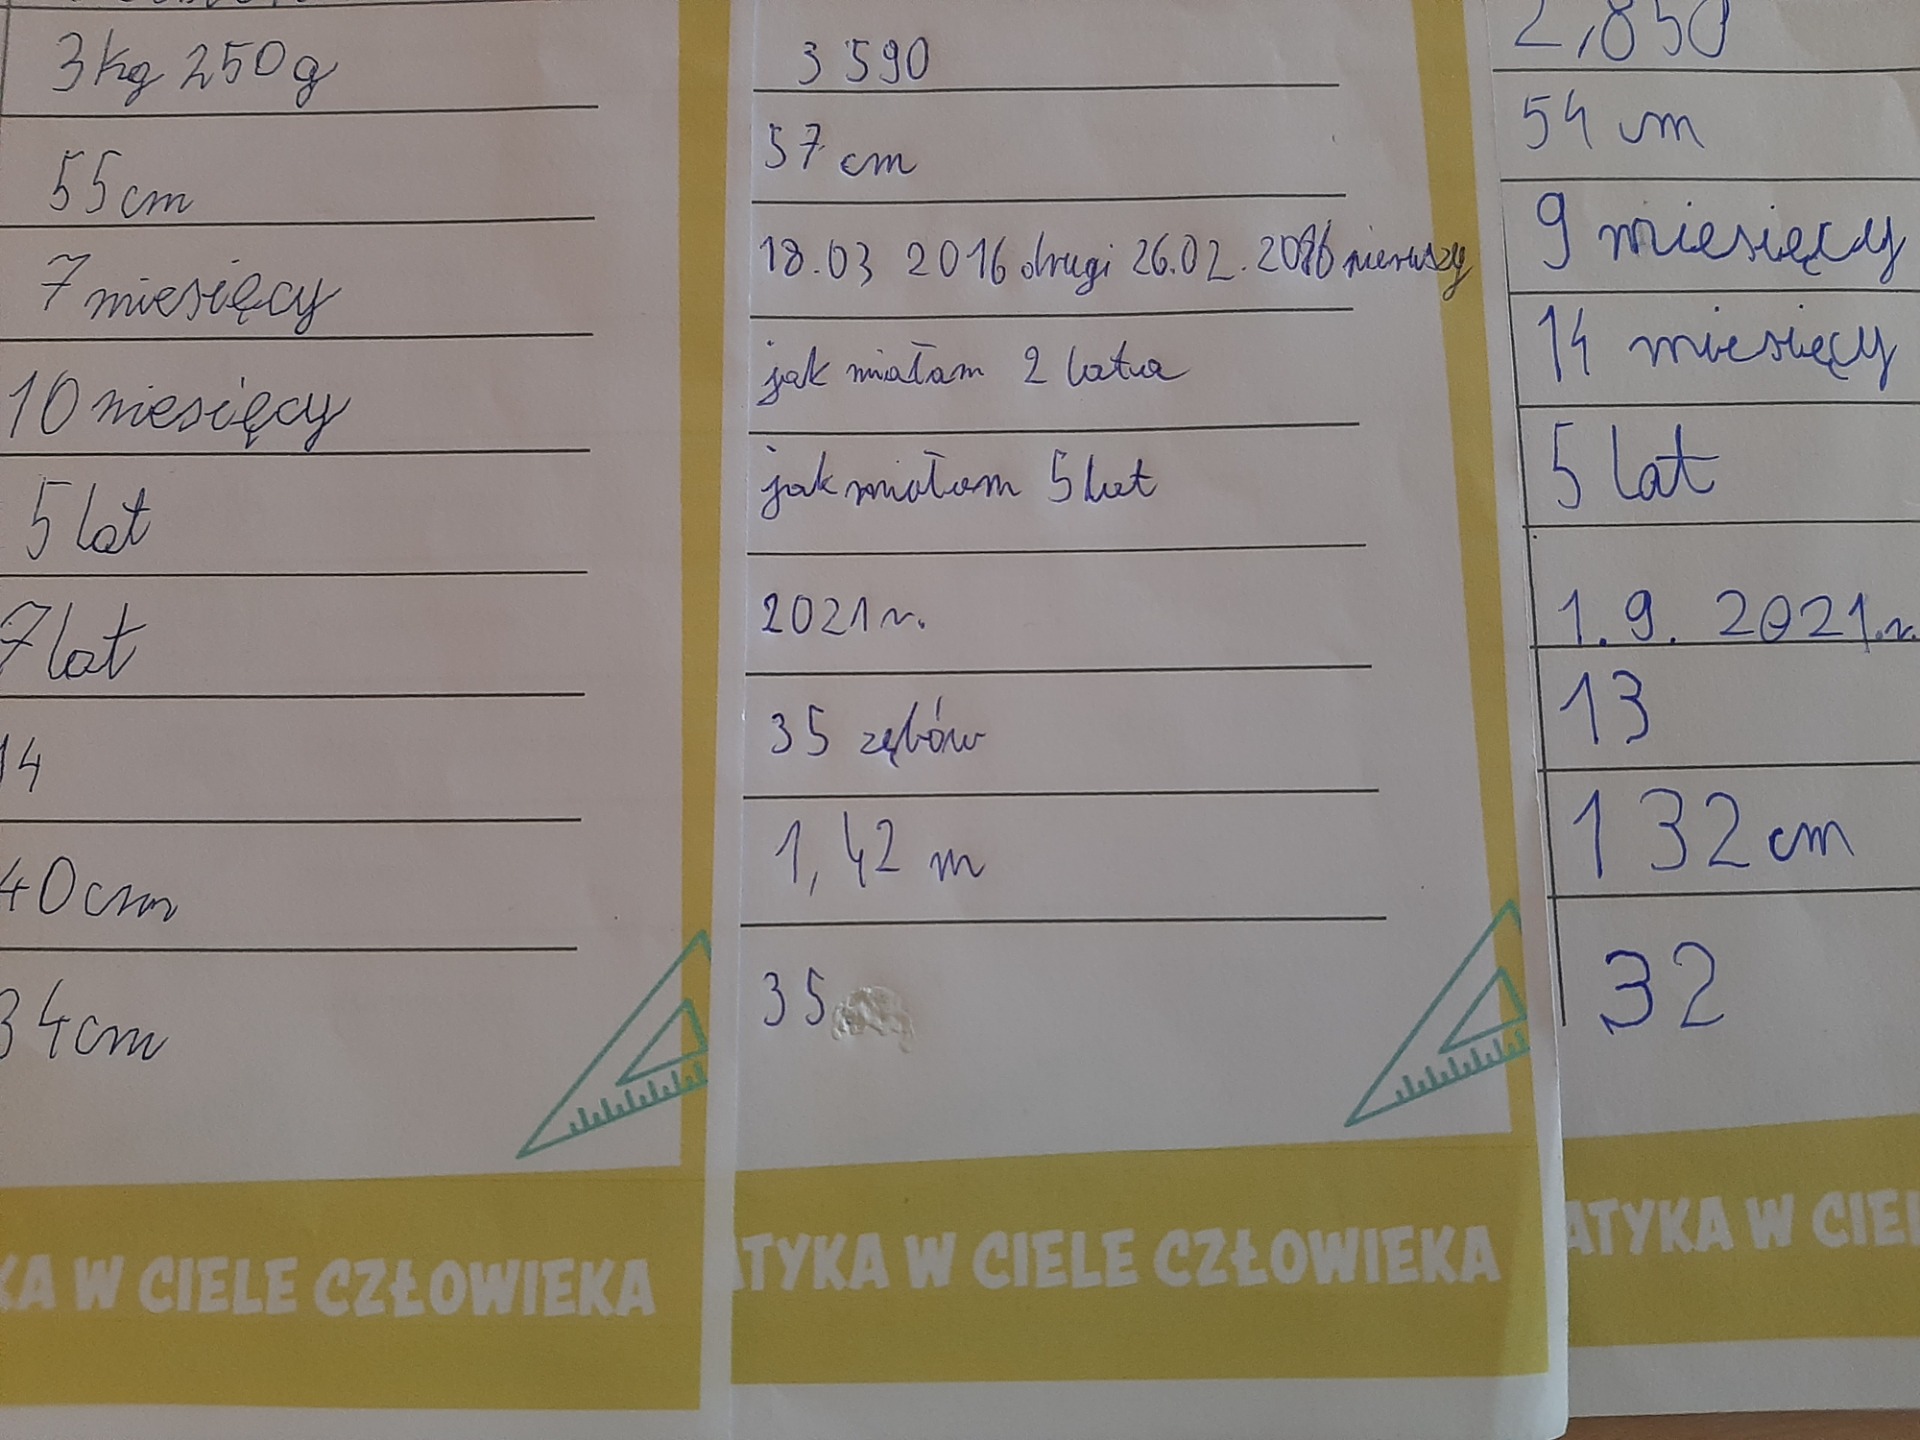 3kg 250g
55cm
7 miesięcy
10 miesięcy
5 lat
7 lat
14
40cm
34cm
KA W CIELE CZŁOWIEKA
3 590
57 cm
18.03 2016 drugi 26.02.2016 pierwszy
jak miałam 2 latka
jak miałam 5 lat
2021 r.
35 zębów
1,42 m
35
ATYKA W CIELE CZŁOWIEKA
2,850
54 cm
9 miesięcy
14 miesięcy
5 lat
1.9.2021.r.
13
132 cm
32
ATYKA W CIEL